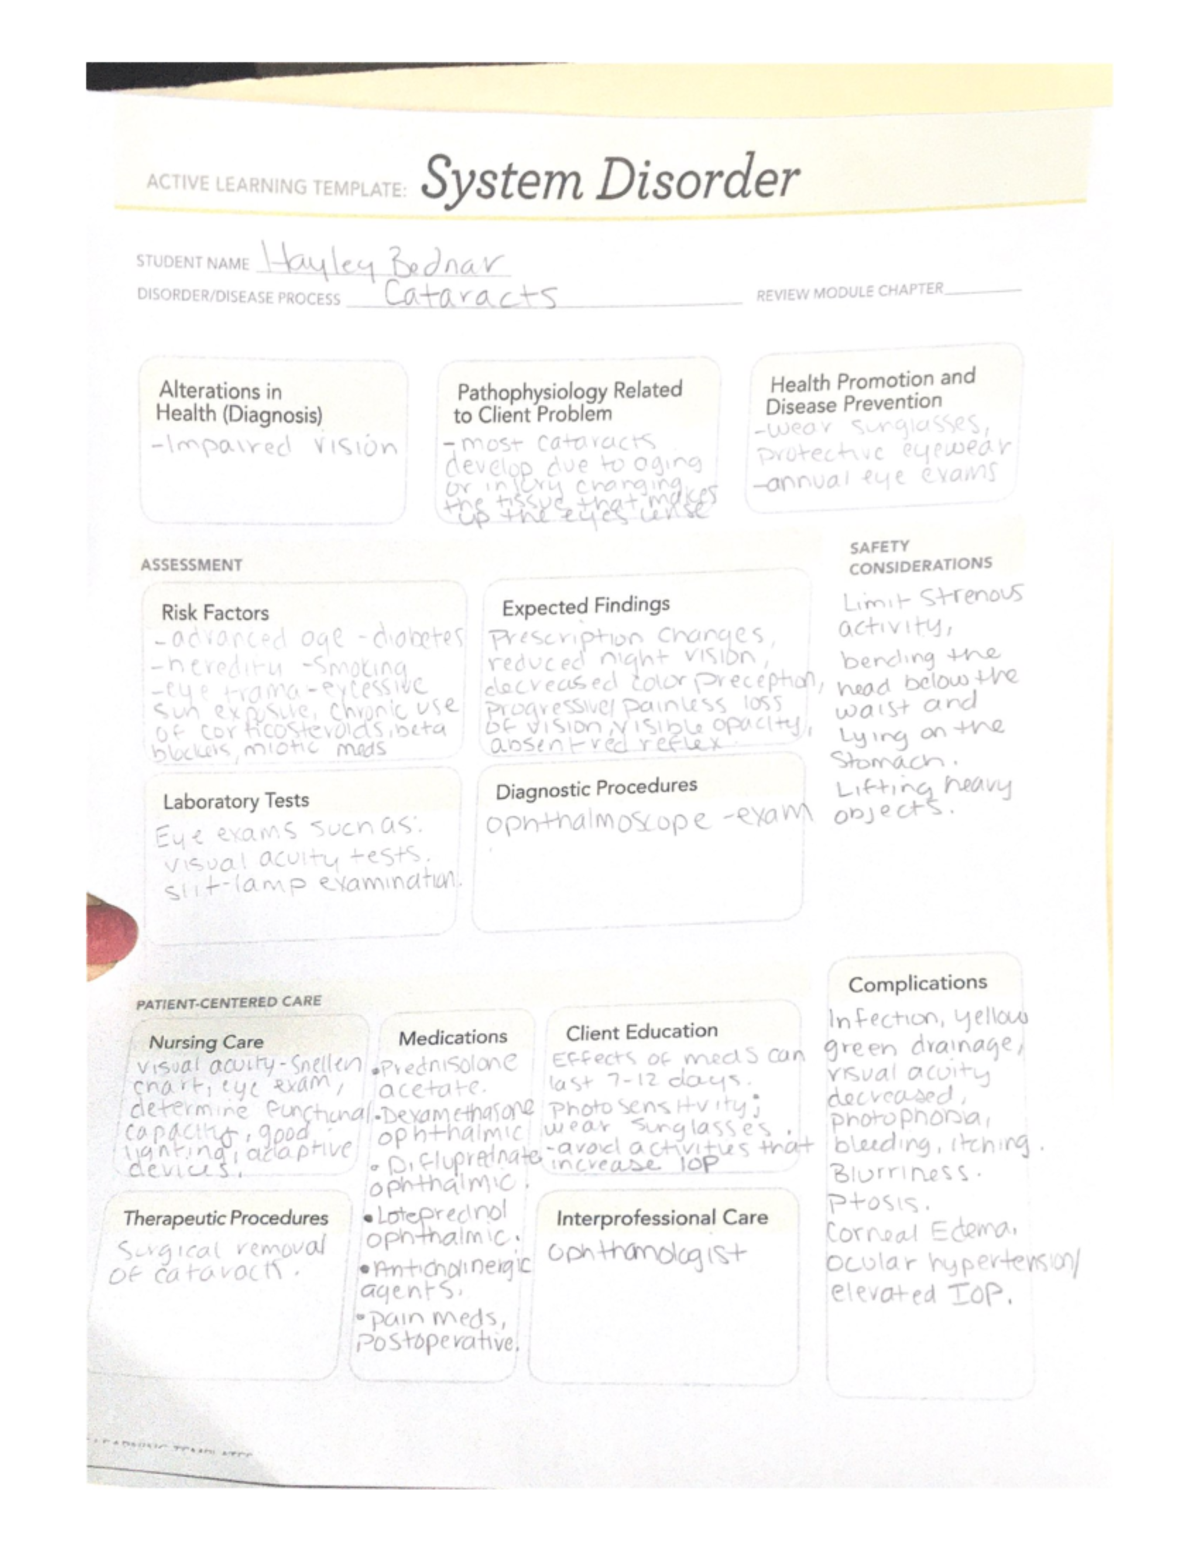 ACTIVE LEARNING TEMPLATE: System Disorder
STUDENT NAME Hayley Bednar
DISORDER/DISEASE PROCESS Cataracts
REVIEW MODULE CHAPTER
Alterations in
Health (Diagnosis)
-Impaired vision
Pathophysiology Related
to Client Problem
-most cataracts
develop due to aging
or injury changing
the tissue that makes
up the eyes lense
Health Promotion and
Disease Prevention
-wear sunglasses,
protective eyewear
-annual eye exams
ASSESSMENT
Risk Factors
-advanced age -diabetes
-heredity -Smoking
-eye trama-excessive
sun exposure, chronic use
of corticosteroids, beta
blockers, miotic meds
Expected Findings
Prescription changes,
reduced night vision,
decreased color preception,
progressive/painless loss
of vision, visible opacity,
absent red reflex
SAFETY
CONSIDERATIONS
Limit Strenous
activity,
bending the
head below the
waist and
Lying on the
Stomach.
Lifting heavy
objects.
Laboratory Tests
Eye exams such as:
visual acuity tests.
slit-lamp examination.
Diagnostic Procedures
ophthalmoscope -exam
PATIENT-CENTERED CARE
Nursing Care
visual acuity-Snellen
chart, eye exam,
determine functional
capacity, good
lighting, adaptive
devices.
Medications
•Prednisolone
acetate.
•Dexamethasone
ophthalmic
•Difluprednate
ophthalmic.
•Loteprednol
ophthalmic.
•Anticholinergic
agents.
•pain meds,
Postoperative.
Client Education
Effects of meds can
last 7-12 days.
Photosensitvity;
wear sunglasses.
-avoid activities that
increase IOP
Complications
Infection, yellow
green drainage,
visual acuity
decreased,
photophobia,
bleeding, itching.
Blurriness.
Ptosis.
Corneal Edema.
ocular hypertension/
elevated IOP.
Therapeutic Procedures
Surgical removal
of cataract.
Interprofessional Care
Ophthamologist